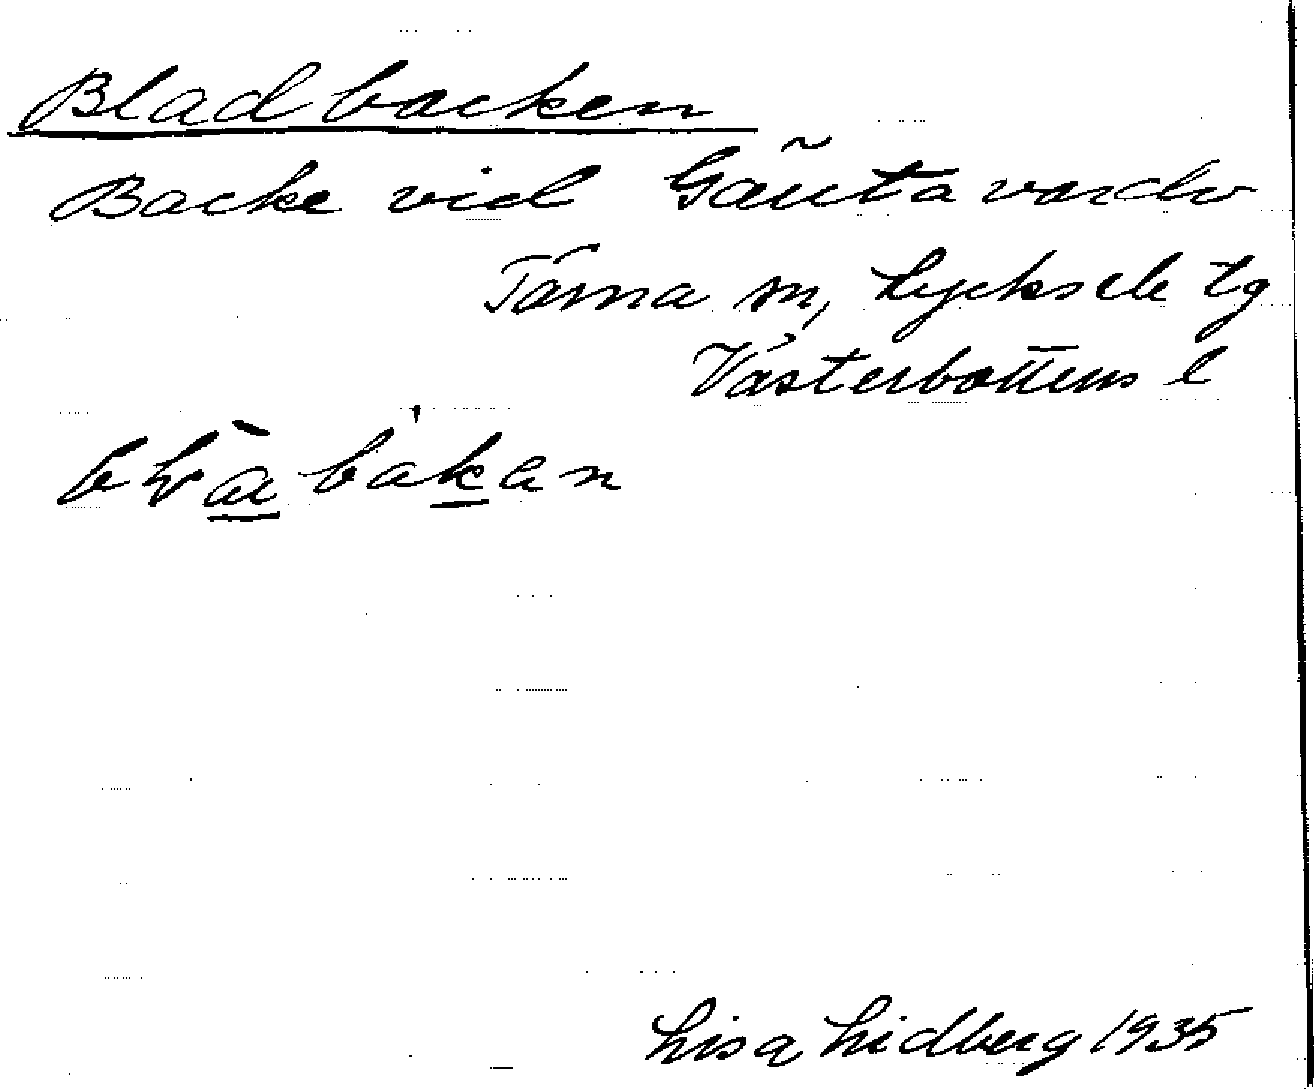 Bladbacken
Backe vid Gäutavardo
Tärna sn, Lycksele tg
Västerbottens l
Lisa Lidberg 1935